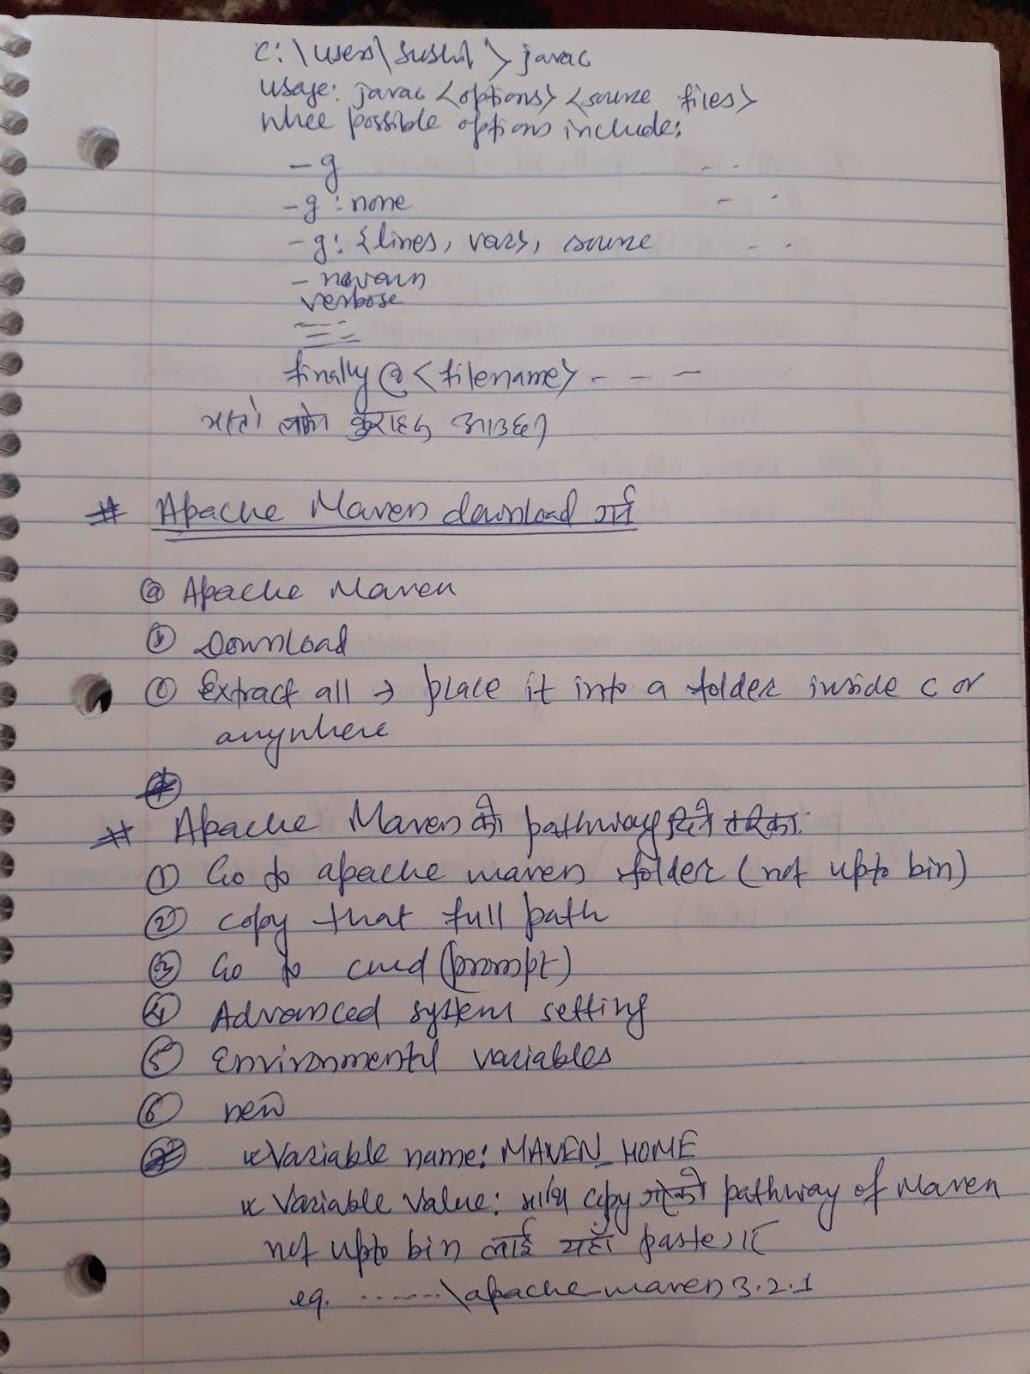 C:\Users\Sushil>javac
usage: javac <options> <source files>
Whee possible options include:
-g - -
-g : none - -
-g: {lines, vars, source - -
- nowarn
verbose
finally @ <filename> - - -
# Apache Maven download गर्न
ⓐ Apache Maven
ⓑ Download
ⓒ Extract all → place it into a folder inside C or
anywhere
# Apache Maven को pathway दिने तरिका:
① Go to apache maven folder (not upto bin)
② copy that full path
③ Go to cmd (prompt)
④ Advanced system setting
⑤ Environmental variables
⑥ new
* Variable name: MAVEN_HOME
* Variable Value: माथि copy गरेको pathway of Maven
not upto bin लाई यहाँ paste गर्ने
eg. .......\apache maven 3.2.1